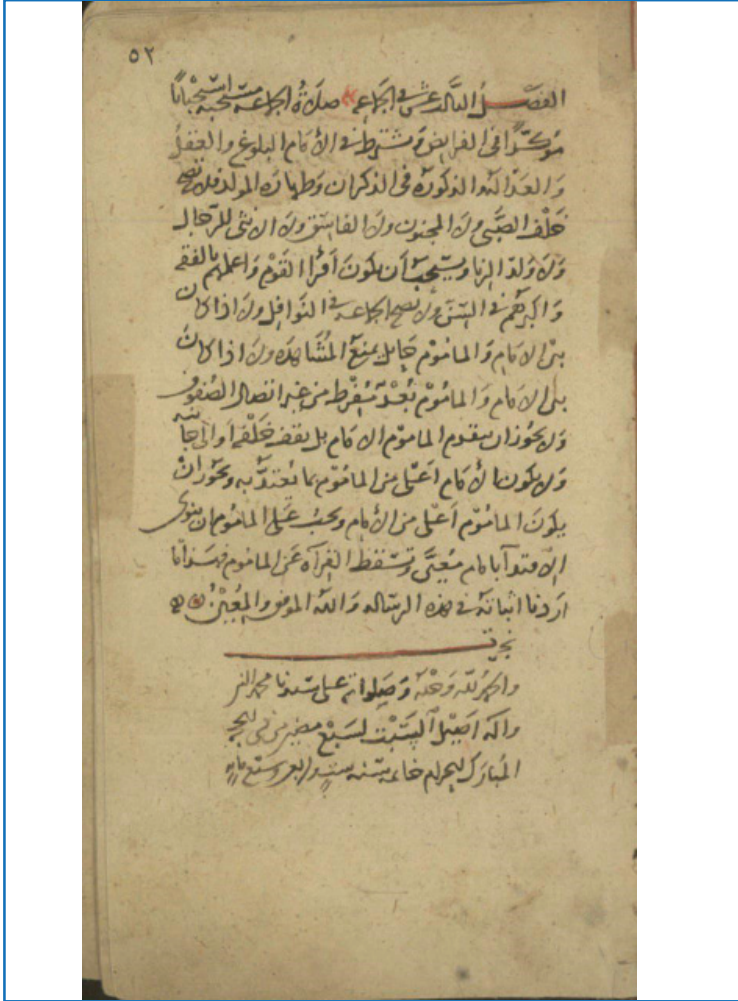 ٥٢
الفصل الثالث عشر في الجماعة صلاة الجماعة مستحبة استحبابًا
مؤكدًا في الفرايض وتشترط في الامام البلوغ والعقل
والعدالة والذكورة في الذكران وطهارة المولد فلا تصح
خلف الصبي ولا المجنون ولا الفاسق ولا الانثى للرجال
ولا ولد الزنا ويستحب ان يكون أقرأ القوم واعلمهم بالفقه
واكبرهم في السن ولا تصح الجماعة في النوافل ولا اذا كان
بين الامام والماموم حايل يمنع المشاهدة ولا اذا كان
بين الامام والماموم بُعْد مُفرط من غير اتصال الصفوف
ولا يجوز ان يتقدم الماموم الامام بل يقف خلفه أو الى جانبه
ولا يكون الامام اعلى من الماموم بما يُعتد به ويجوز ان
يكون الماموم أعلى من الامام ويجب على الماموم ان ينوى
الاقتدآ بامام معين وتسقط القرآة عن الماموم فهذا ما
اردنا اثباته في هذه الرسالة والله الموفق والمعين
والحمد لله وحده وصلواته على سيدنا محمد النبي
وآله اصيل السبت لسبع مضين من ذى الحجة
المبارك الحرام سنة سبع مائة